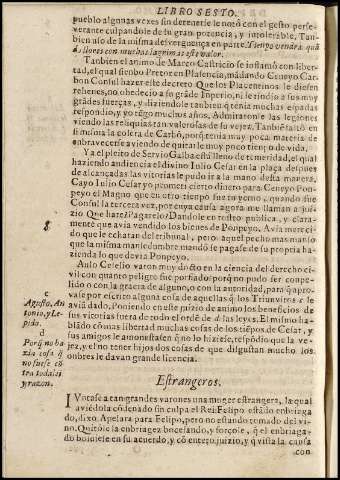 LIBRO SESTO.
pueblo algunas vezes sin detenerle le notó con el gesto perse-
verante culpandole de su gran potencia, y intolerable, Tan-
bien uso de la misma desverguença en parte Tienpo vendra que
lloren con muchas lagrimas este valor.
Tanbien el animo de Marco Castricio se inflamó con liber-
tad, el qual siendo Pretor en Plasencia, mãdando Ceneyo Car-
bon Consul hazer este decreto Que los Placentinos le diesen
rehenes, no obedecio a su grãde Inperio, ni se rindio a sus muy
grãdes fuerças, y diziendole tanbien q̃ tenia muchas espadas
respondio, y yo tẽgo muchos años. Admiraronse las legiones
viendo las reliquias tan valerosas de su vejez. Tanbiẽ faltó en
si misma la colera de Carbó, porq̃ tenia muy poca materia de
enbravecerse aviendo de quitarle muy poco tienpo de vida.
Ya el pleito de Servio Galba està lleno de temeridad, el qual
haziendo audiencia el divino Iulio Cesar en la plaça despues
de alcançadas las vitorias le pudo ir a la mano desta manera,
Cayo Iulio Cesar yo prometi cierto dinero para Ceneyo Pon-
peyo el Magno que en otro tienpo fue tu yerno, quando fue
Consul la tercera vez, por cuya causa agora me llaman a jui-
zio Que harè? Pagarelo? Dandole en rostro publica, y clara-
mente que avia vendido los bienes de Ponpeyo. Avia mereci-
do que le echaran del tribunal, pero aquel pecho mas manso
que la misma mansedumbre mandó se pagase de su propria ha-
zienda lo que devia Ponpeyo.
Aulo Caselio varon muy docto en la ciencia del derecho ci-
vil con quanto peligro fue porfiado? porq̃ no pudo ser conpe-
lido o con la gracia de alguno, o con la autoridad, para q̃ apro-
vase por escrito alguna cosa de aquellas q̃ los Triunviros c le
aviã dado, Poniendo en este juizio de animo los beneficios de
sus vitorias fuera de todo el ordẽ de las leyes. El mismo ha-
blãdo cõ mas libertad muchas cosas de los tiẽpos de Cesar, y
sus amigos le amonestasen q̃ no lo hiziese, respõdio que la ve-
jez, y el no tener hijos dos cosas de que disgustan mucho los
onbres le davan grande licencia.
c
Agusto, An
tonio, y Le-
pido.
d
Porq̃ no ha-
zia cosa q̃
no fuese cõ
tra toda lei
y razon.
Estrangeros.
IVntase a tan grandes varones una muger estrangera, la qual
aviẽdola cõdenado sin culpa el Rei Felipo estãdo enbriaga
do, dixo. Apelara para Felipo, pero no estando tomado del vi-
no. Quitóle la enbriagez bocesando, y forçole, q̃ el enbriaga-
do bolviese en su acuerdo, y cõ entero juizio, y q̃ vista la causa
con